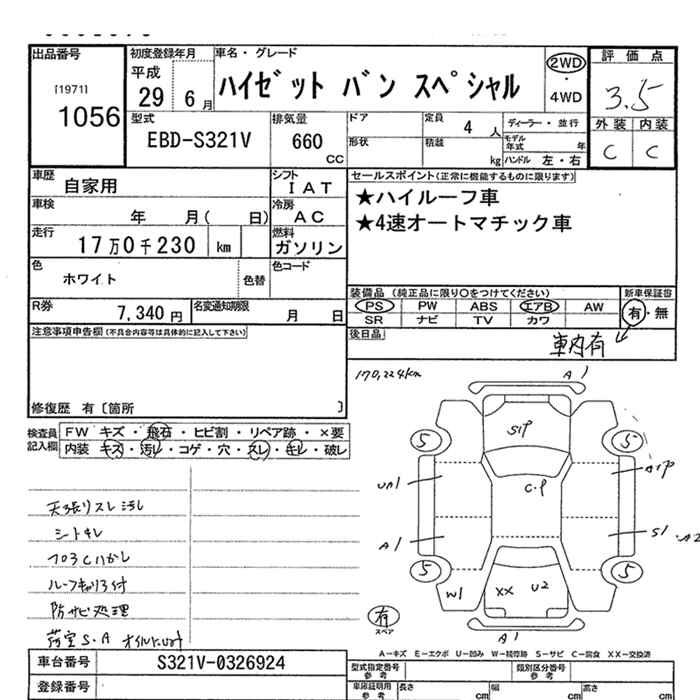 出品番号 初度登録年月 車名・グレード 評価点
[1971] 平成 ハイゼット バン スペシャル 2WD 3.5
1056 29 6月 ・ 4WD 外装 内装
型式 排気量 ドア 定員 4人 ディーラー・並行 C C
EBD-S321V 660 CC 形状 積載 kg モデル年式 年 ハンドル 左・右
車歴 自家用 シフト IAT セールスポイント(正常に機能するものに限ります)
車検 年 月( 日) 冷房 AC ★ハイルーフ車
走行 17万0千230 km 燃料 ガソリン ★4速オートマチック車
色 ホワイト 色替 色コード
装備品 (純正品に限り○をつけてください) 新車保証書
R券 7,340円 名変通知期限 月 日 PS PW ABS エアB AW 有・無
SR ナビ TV カワ
注意事項申告欄(不具合内容等は具体的に記入して下さい) 後日品 車内有
170,224km A1
修復歴 有〔箇所 〕
検査員記入欄 FW キズ・飛石・ヒビ割・リペア跡・×要
内装 キズ・汚レ・コゲ・穴・スレ・キレ・破レ
S1P
5 5
C.P
UA1
A1 S1 A2
5 5
W1 XX U2
天張りスレ汚れ
シートキレ
フロアCハガレ
ルーフキャリア付
防サビ処理
荷室S.A
有 スペア
A1
A-キズ E-エクボ U-凹み W-補修跡 S-サビ C-腐食 XX-交換済
車台番号 S321V-0326924 型式指定番号 参考 類別区分番号 参考
登録番号 車庫証明用 参考 長さ cm 幅 cm 高さ cm